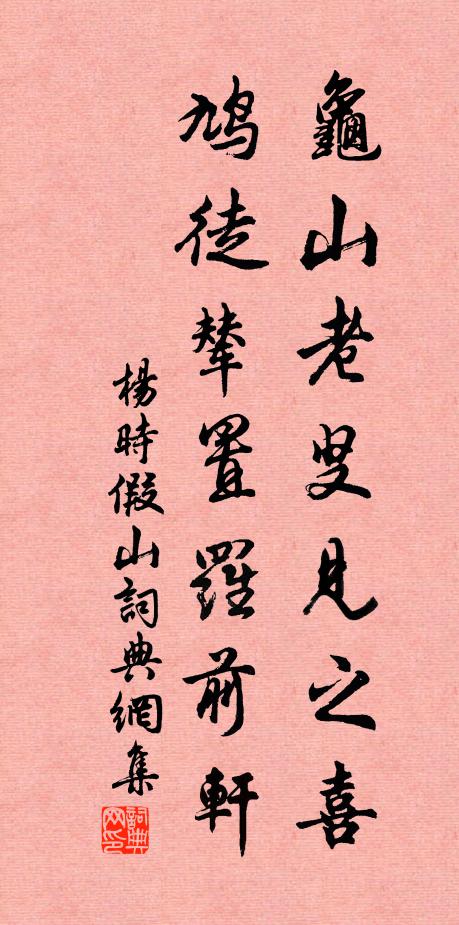 龜山老叟見之喜
鳩徒輦置羅前軒
楊時假山詞典網集
詞典网印